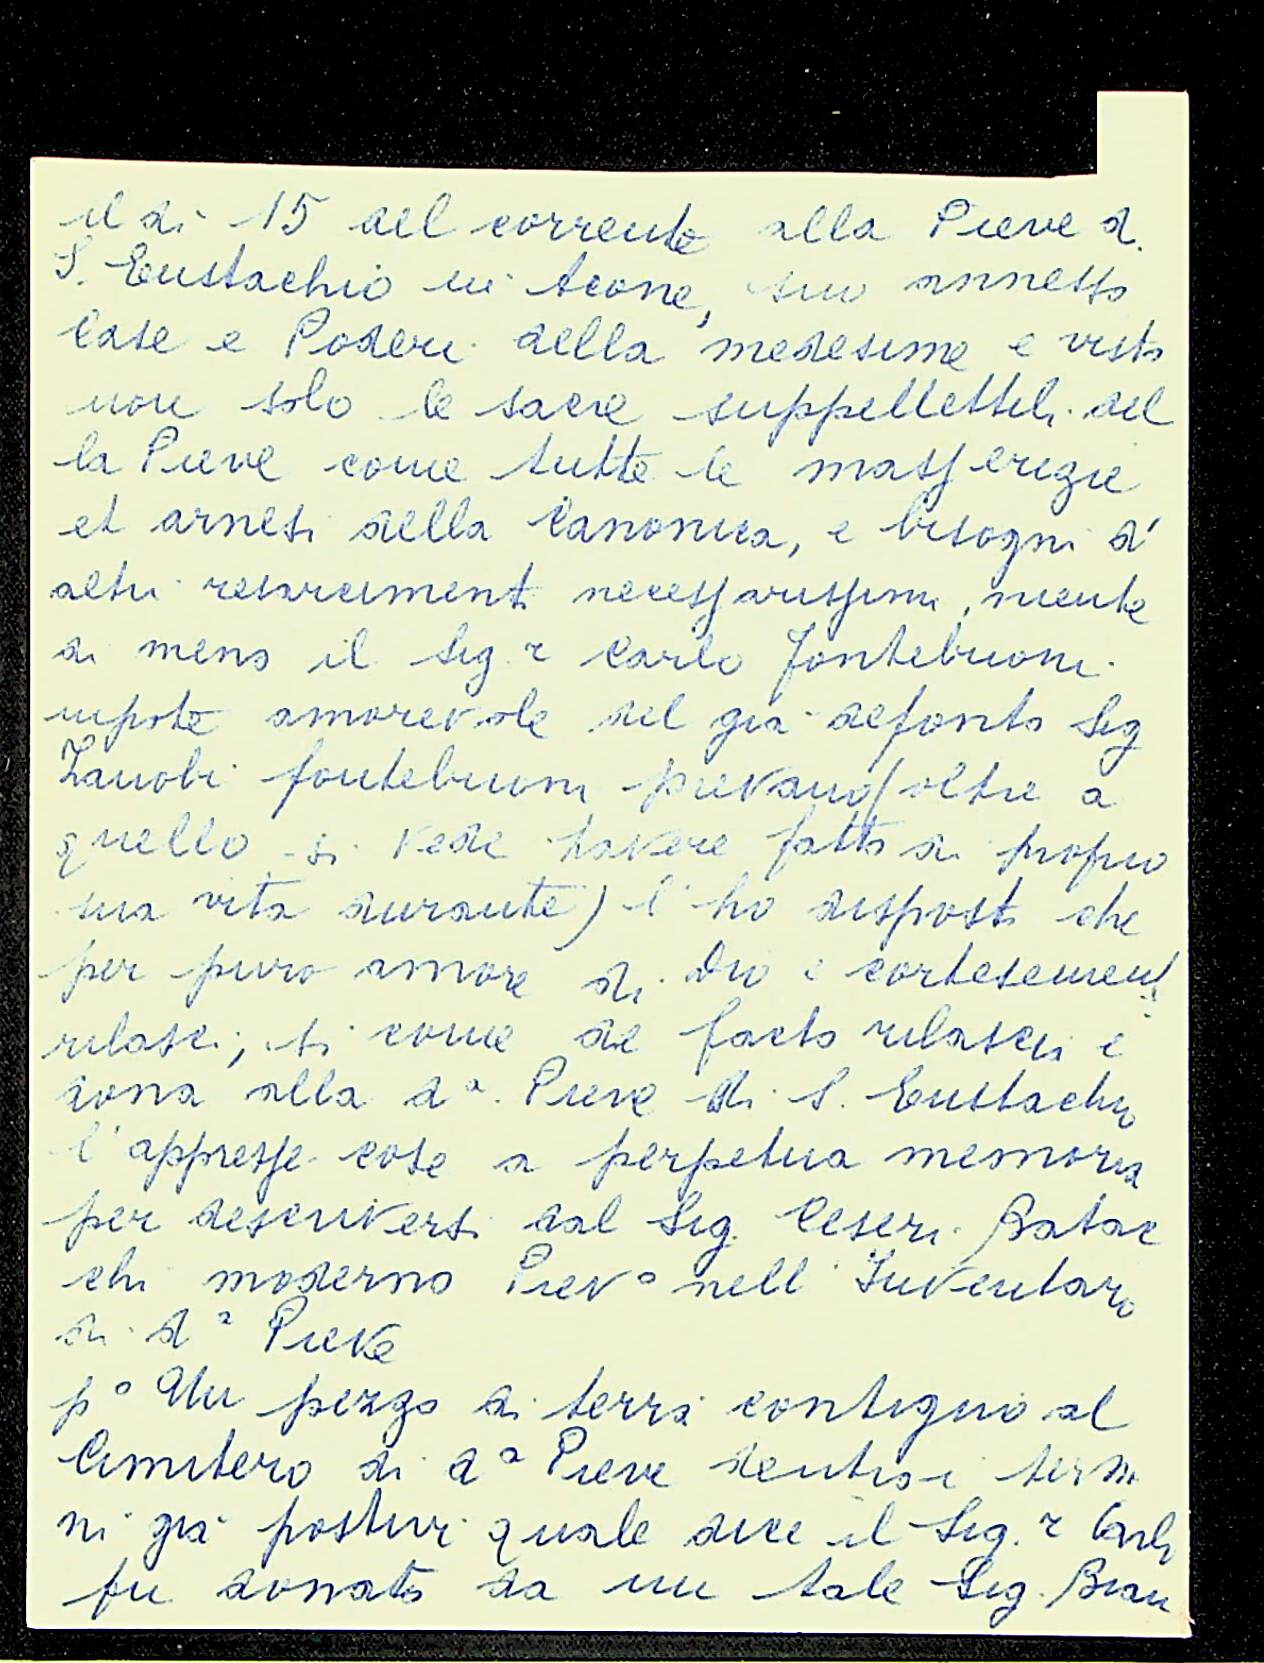 il dì 15 del corrente alla Pieve d.
S. Eustachio in Acone, suo annesso
Case e Poderi della medesima e visto
non solo le sacre suppellettili del
la Pieve come tutte le masserizie
et arnesi della Canonica, e bisogni d'
altri resarcimenti necessarissimi, niente
di meno il Sig.r Carlo Fontebuoni
nipote amorevole del già defonto Sig
Zanobi fontebuoni pievano (oltre a
quello si vede havere fatto di proprio
sua vita durante) l'ho disposto che
per puro amore di Dio e cortesement
rilasci, si come de facto rilascia e
dona alla d.a Pieve di S. Eustachio
l'appresse cose a perpetua memoria
per descriversi dal Sig. Ceseri Batac
chi moderno Piev.o nell'Inventaro
di d.a Pieve
p.o Un pezzo di terra contiguo al
Cimitero di d.a Pieve dentro i termi
ni già postivi quale dice il Sig.r Carlo
fu donato da un tale Sig. Bian